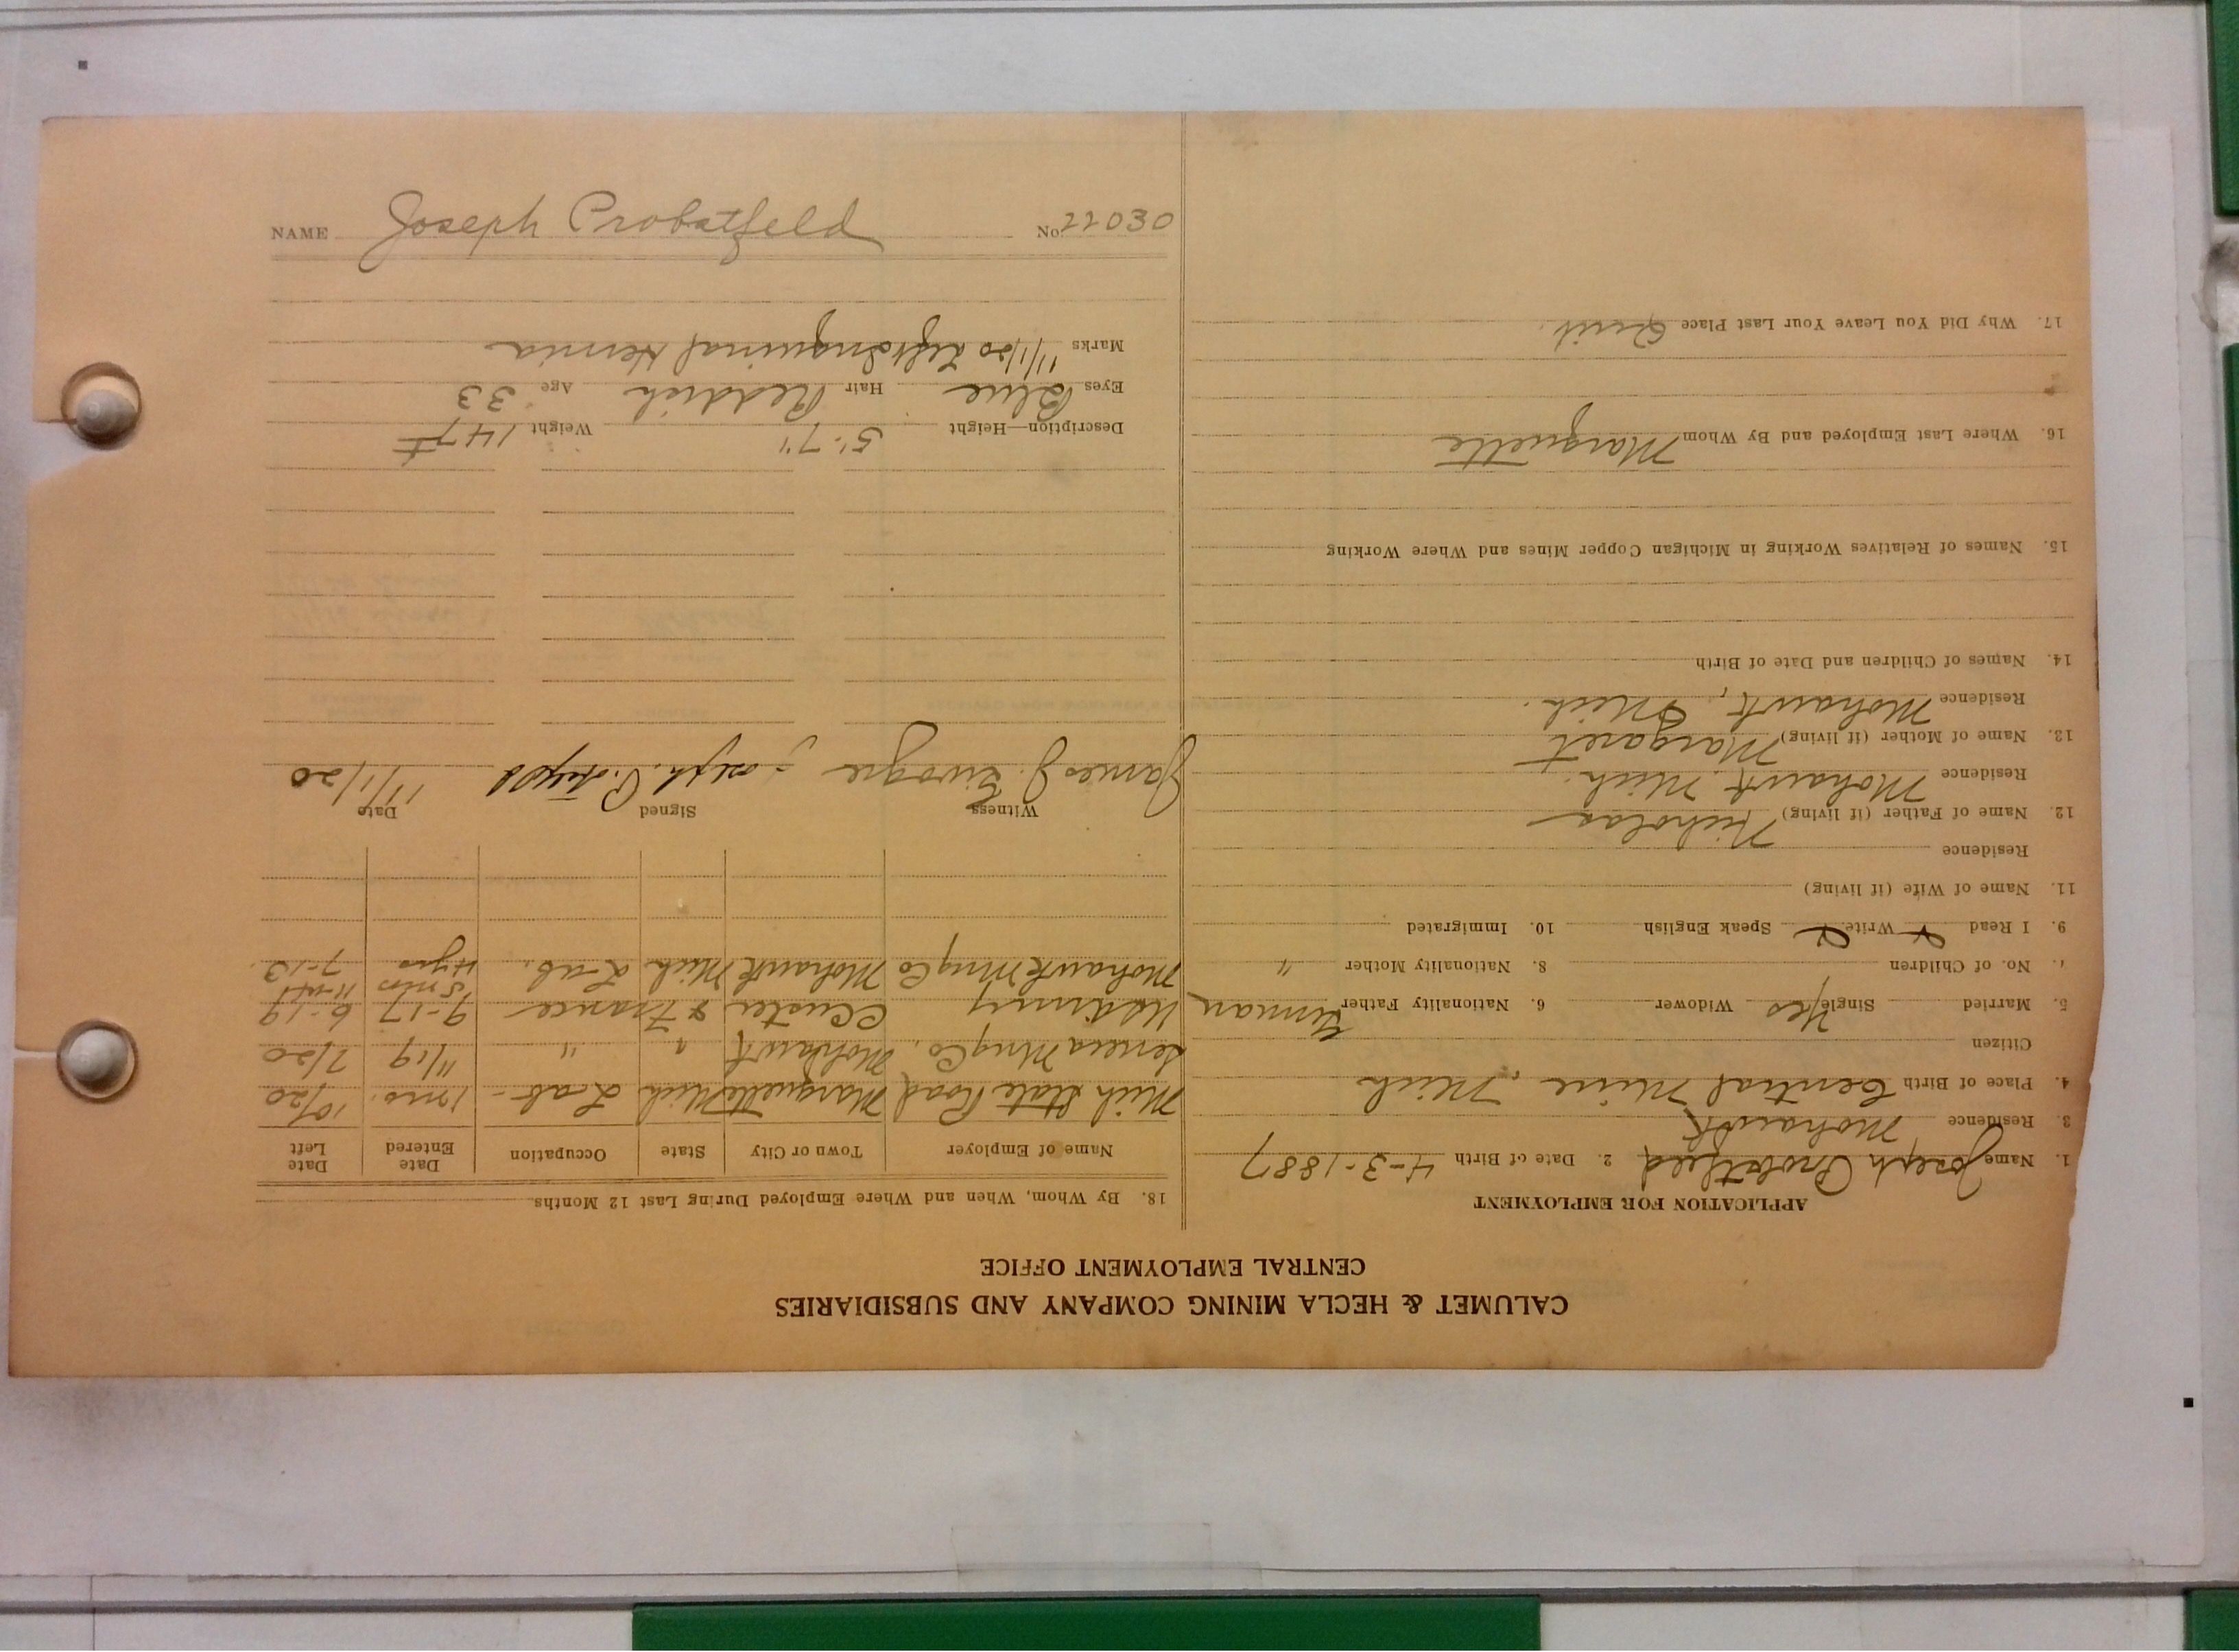 CALUMET & HECLA MINING COMPANY AND SUBSIDIARIES
CENTRAL EMPLOYMENT OFFICE
APPLICATION FOR EMPLOYMENT
1. Name Joseph Probstfeld 2. Date of Birth 4-3-1887
3. Residence Mohawk
4. Place of Birth Central Mine, Mich
Citizen
5. Married Single Yes Widower 6. Nationality Father German
7. No. of Children 8. Nationality Mother "
9. I Read Write Speak English 10. Immigrated
11. Name of Wife (if living)
Residence
12. Name of Father (if living) Nicholas
Residence Mohawk Mich.
13. Name of Mother (if living) Margaret
Residence Mohawk, Mich.
14. Names of Children and Date of Birth
15. Names of Relatives Working in Michigan Copper Mines and Where Working
16. Where Last Employed and By Whom Marquette
17. Why Did You Leave Your Last Place Quit.
18. By Whom, When and Where Employed During Last 12 Months.
Name of Employer Town or City State Occupation Date Entered Date Left
Mich State Road Marquette Mich Lab- 1 mo. 10/20
Seneca Mng Co. Mohawk " " 11/19 7/20
US Army Custer & France 9-17 6-19
Mohawk Mng Co Mohawk Mich Lab. 4 yrs 5 mos 7-13
Witness Signed Date
James J. Joseph. 11/1/20
Description—Height 5'-7" Weight 147#
Eyes Blue Hair Reddish Age 33
Marks 11/1/20 Left Inguinal Hernia
NAME Joseph Probstfeld No 22030